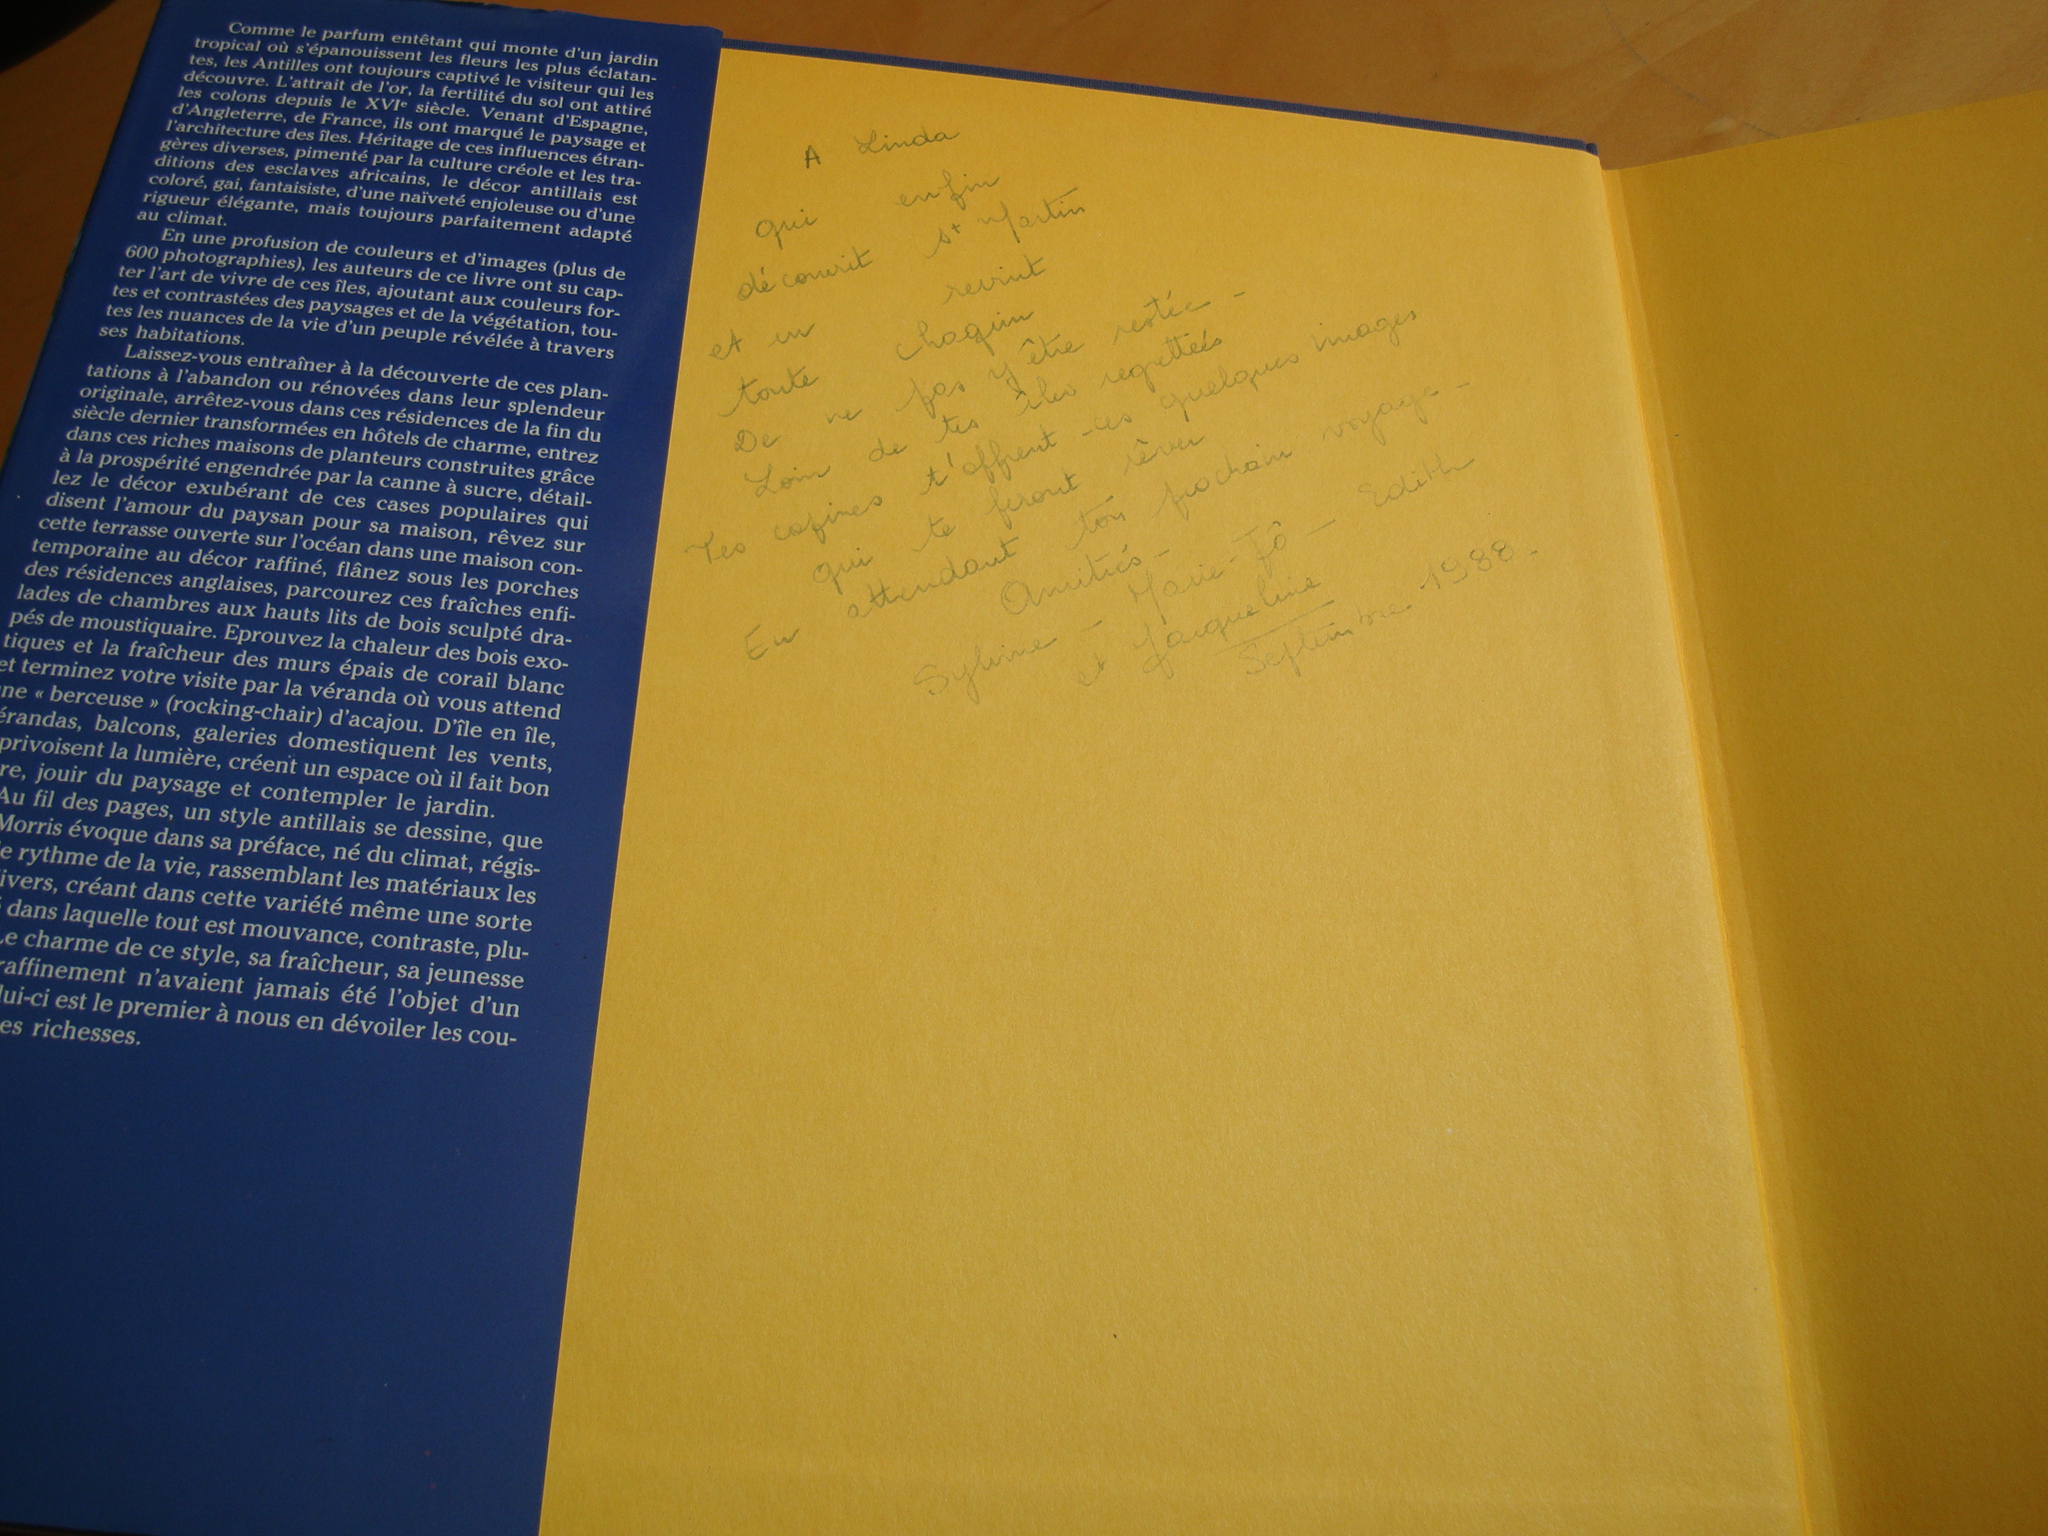 Comme le parfum entêtant qui monte d'un jardin
tropical où s'épanouissent les fleurs les plus éclatan-
tes, les Antilles ont toujours captivé le visiteur qui les
découvre. L'attrait de l'or, la fertilité du sol ont attiré
les colons depuis le XVIe siècle. Venant d'Espagne,
d'Angleterre, de France, ils ont marqué le paysage et
l'architecture des îles. Héritage de ces influences étran-
gères diverses, pimenté par la culture créole et les tra-
ditions des esclaves africains, le décor antillais est
coloré, gai, fantaisiste, d'une naïveté enjoleuse ou d'une
rigueur élégante, mais toujours parfaitement adapté
au climat.
En une profusion de couleurs et d'images (plus de
600 photographies), les auteurs de ce livre ont su cap-
ter l'art de vivre de ces îles, ajoutant aux couleurs for-
tes et contrastées des paysages et de la végétation, tou-
tes les nuances de la vie d'un peuple révélée à travers
ses habitations.
Laissez-vous entraîner à la découverte de ces plan-
tations à l'abandon ou rénovées dans leur splendeur
originale, arrêtez-vous dans ces résidences de la fin du
siècle dernier transformées en hôtels de charme, entrez
dans ces riches maisons de planteurs construites grâce
à la prospérité engendrée par la canne à sucre, détail-
lez le décor exubérant de ces cases populaires qui
disent l'amour du paysan pour sa maison, rêvez sur
cette terrasse ouverte sur l'océan dans une maison con-
temporaine au décor raffiné, flânez sous les porches
des résidences anglaises, parcourez ces fraîches enfi-
lades de chambres aux hauts lits de bois sculpté dra-
pés de moustiquaire. Eprouvez la chaleur des bois exo-
tiques et la fraîcheur des murs épais de corail blanc
et terminez votre visite par la véranda où vous attend
ne « berceuse » (rocking-chair) d'acajou. D'île en île,
érandas, balcons, galeries domestiquent les vents,
privoisent la lumière, créent un espace où il fait bon
re, jouir du paysage et contempler le jardin.
Au fil des pages, un style antillais se dessine, que
Morris évoque dans sa préface, né du climat, régis-
e rythme de la vie, rassemblant les matériaux les
ivers, créant dans cette variété même une sorte
dans laquelle tout est mouvance, contraste, plu-
Le charme de ce style, sa fraîcheur, sa jeunesse
raffinement n'avaient jamais été l'objet d'un
lui-ci est le premier à nous en dévoiler les cou-
es richesses.
A Linda
qui enfin
découvrit St Martin
et en revint
toute chagrin
De ne pas y être restée -
Loin de tes îles regrettées
Tes copines t'offrent ces quelques images
qui te feront rêver
En attendant ton prochain voyage -
Amitiés -
Sylvine - Marie-Jô - Edith
et Jacqueline
Septembre 1988.